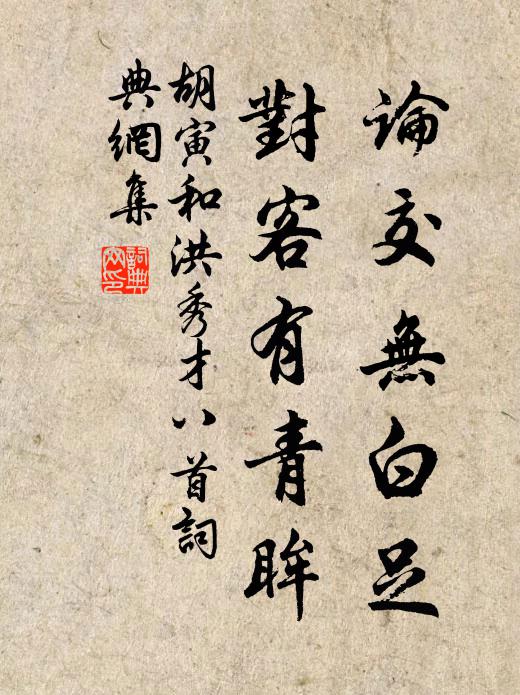 論交無白足
對客有青眸
胡寅和洪秀才八首詞
典網集
詞典網印